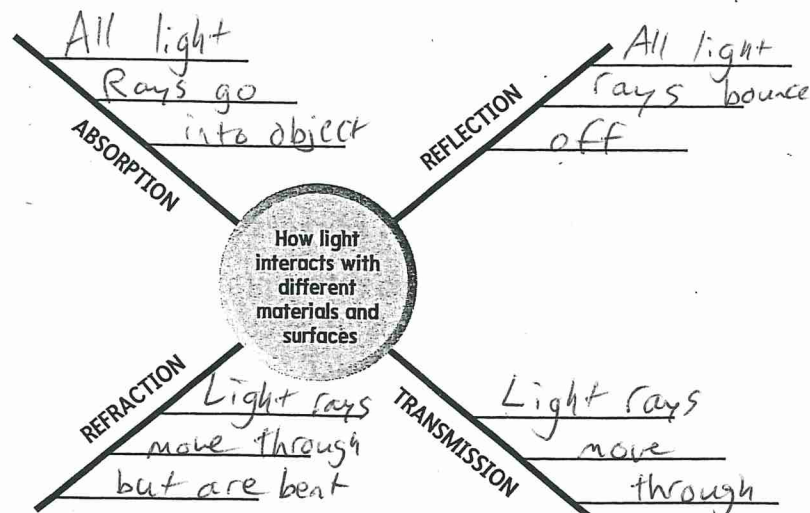 All light
Rays go
into object
ABSORPTION
All light
rays bounce
off
REFLECTION
How light
interacts with
different
materials and
surfaces
REFRACTION
Light rays
move through
but are bent
TRANSMISSION
Light rays
move
through